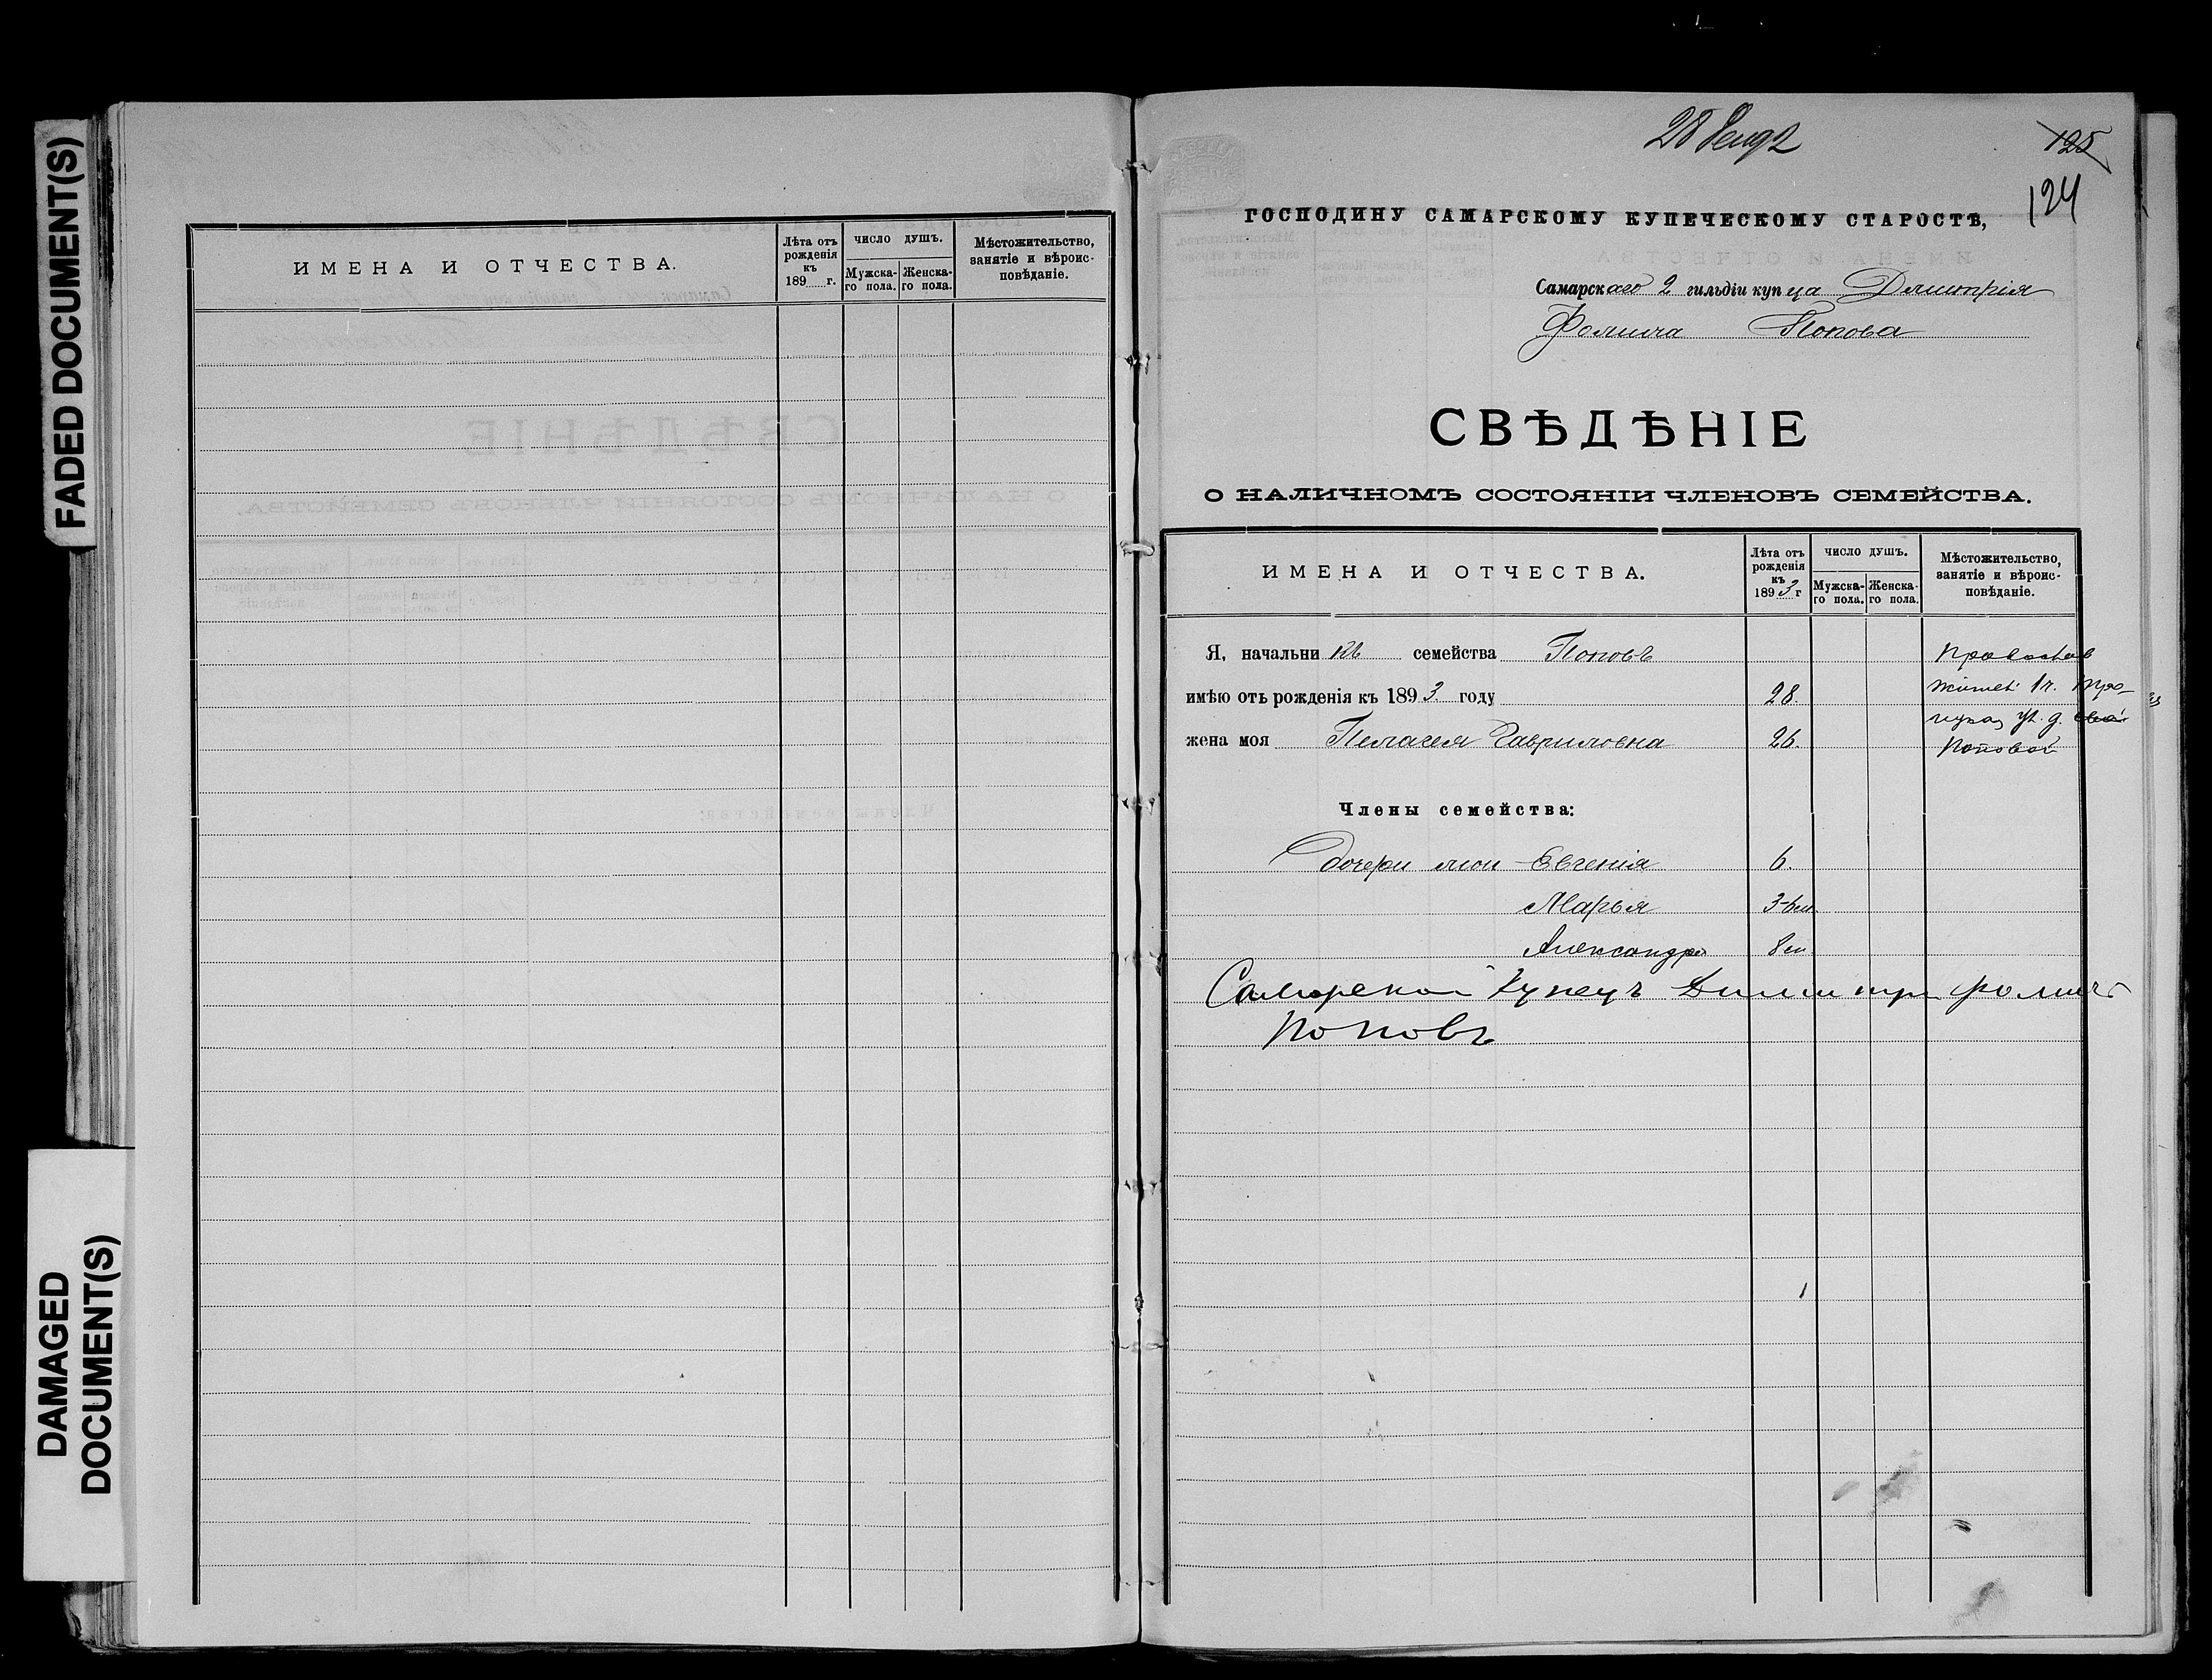 FADED DOCUMENT(S)
DAMAGED
DOCUMENT(S)
ИМЕНА И ОТЧЕСТВА.
Лѣта отъ
рожденія
къ
189 г.
ЧИСЛО ДУШЪ.
Мужска-
го пола.
Женска-
го пола.
Мѣстожительство,
занятіе и вѣроис-
повѣданіе.
28
125
124
ГОСПОДИНУ САМАРСКОМУ КУПЕЧЕСКОМУ СТАРОСТѢ,
Самарскаго 2 гильдіи купца Дмитрія
Фомича Попова
СВѢДѢНІЕ
О НАЛИЧНОМЪ СОСТОЯНІИ ЧЛЕНОВЪ СЕМЕЙСТВА.
ИМЕНА И ОТЧЕСТВА.
Лѣта отъ
рожденія
къ
1893 г
ЧИСЛО ДУШЪ.
Мужска-
го пола.
Женска-
го пола.
Мѣстожительство,
занятіе и вѣроис-
повѣданіе.
Я, начальникъ семейства Поповъ Православ
имѣю отъ рожденія къ 1893 году 28.
жена моя Пелагея Гавриловна 26. Поповой
Члены семейства:
Дочери мои Евгенія 6.
Марья 3-6м.
Александра 8м
Самарской Купецъ Дмитри Фомичъ
Поповъ